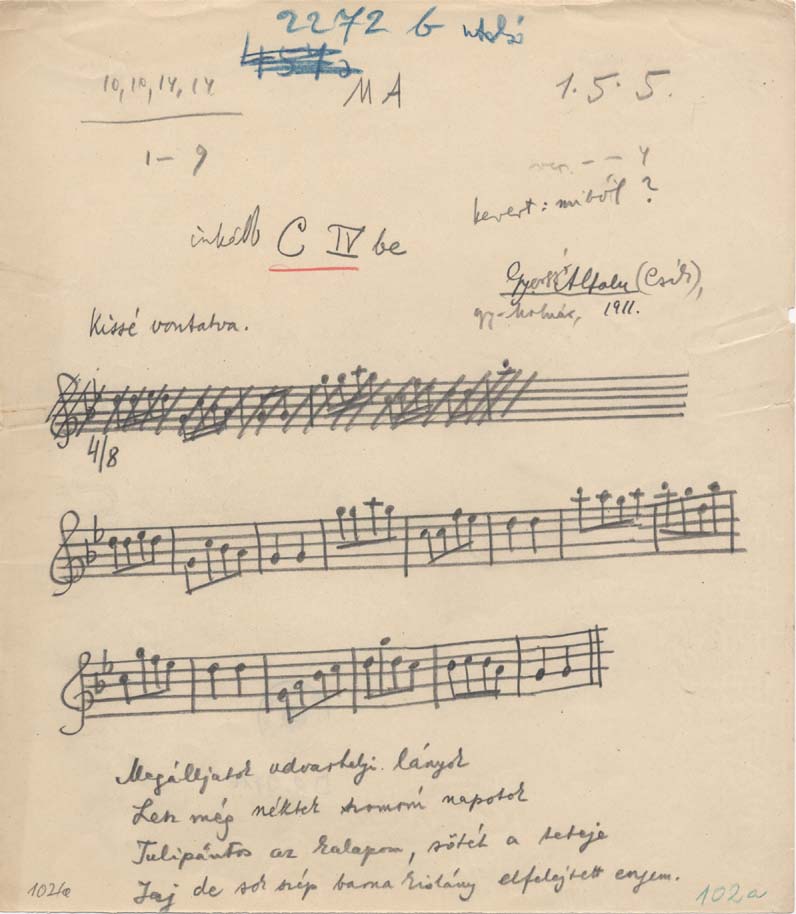 2272 b utolsó
10, 10, 14, 14
MA
1. 5. 5.
1-9
ver. - - 4
kevert: miből?
inkább C IV be
(Csík),
1911.
Kissé vontatva.
4/8
Megálljatok udvarhelyi lányok
Lesz még néktek szomorú napotok
Tulipántos az kalapom, sötét a teteje
Jaj de sok szép barna kislány elfelejtett engem.
102/a
102a